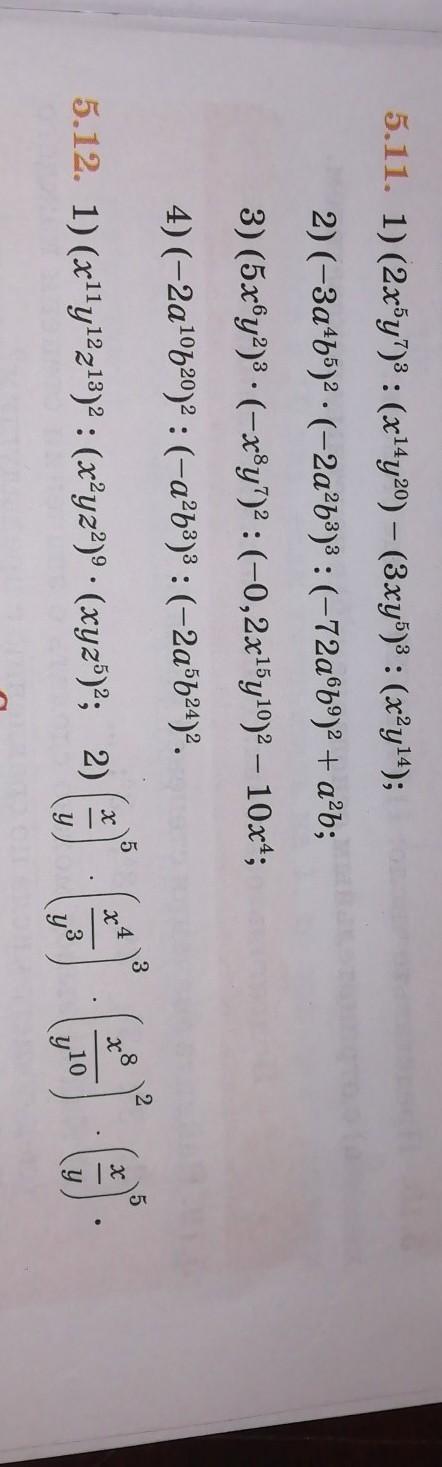 5.11. 1) (2x⁵y⁷)³ : (x¹⁴y²⁰) − (3xy⁵)³ : (x²y¹⁴);
2) (−3a⁴b⁵)² · (−2a²b³)³ : (−72a⁶b⁹)² + a²b;
3) (5x⁶y²)³ · (−x⁸y⁷)² : (−0,2x¹⁵y¹⁰)² − 10x⁴;
4) (−2a¹⁰b²⁰)² : (−a²b³)³ : (−2a⁵b²⁴)².
5.12. 1) (x¹¹y¹²z¹³)² : (x²yz²)⁹ · (xyz⁵)²; 2) (x/y)⁵ · (x⁴/y³)³ · (x⁸/y¹⁰)² · (x/y)⁵.